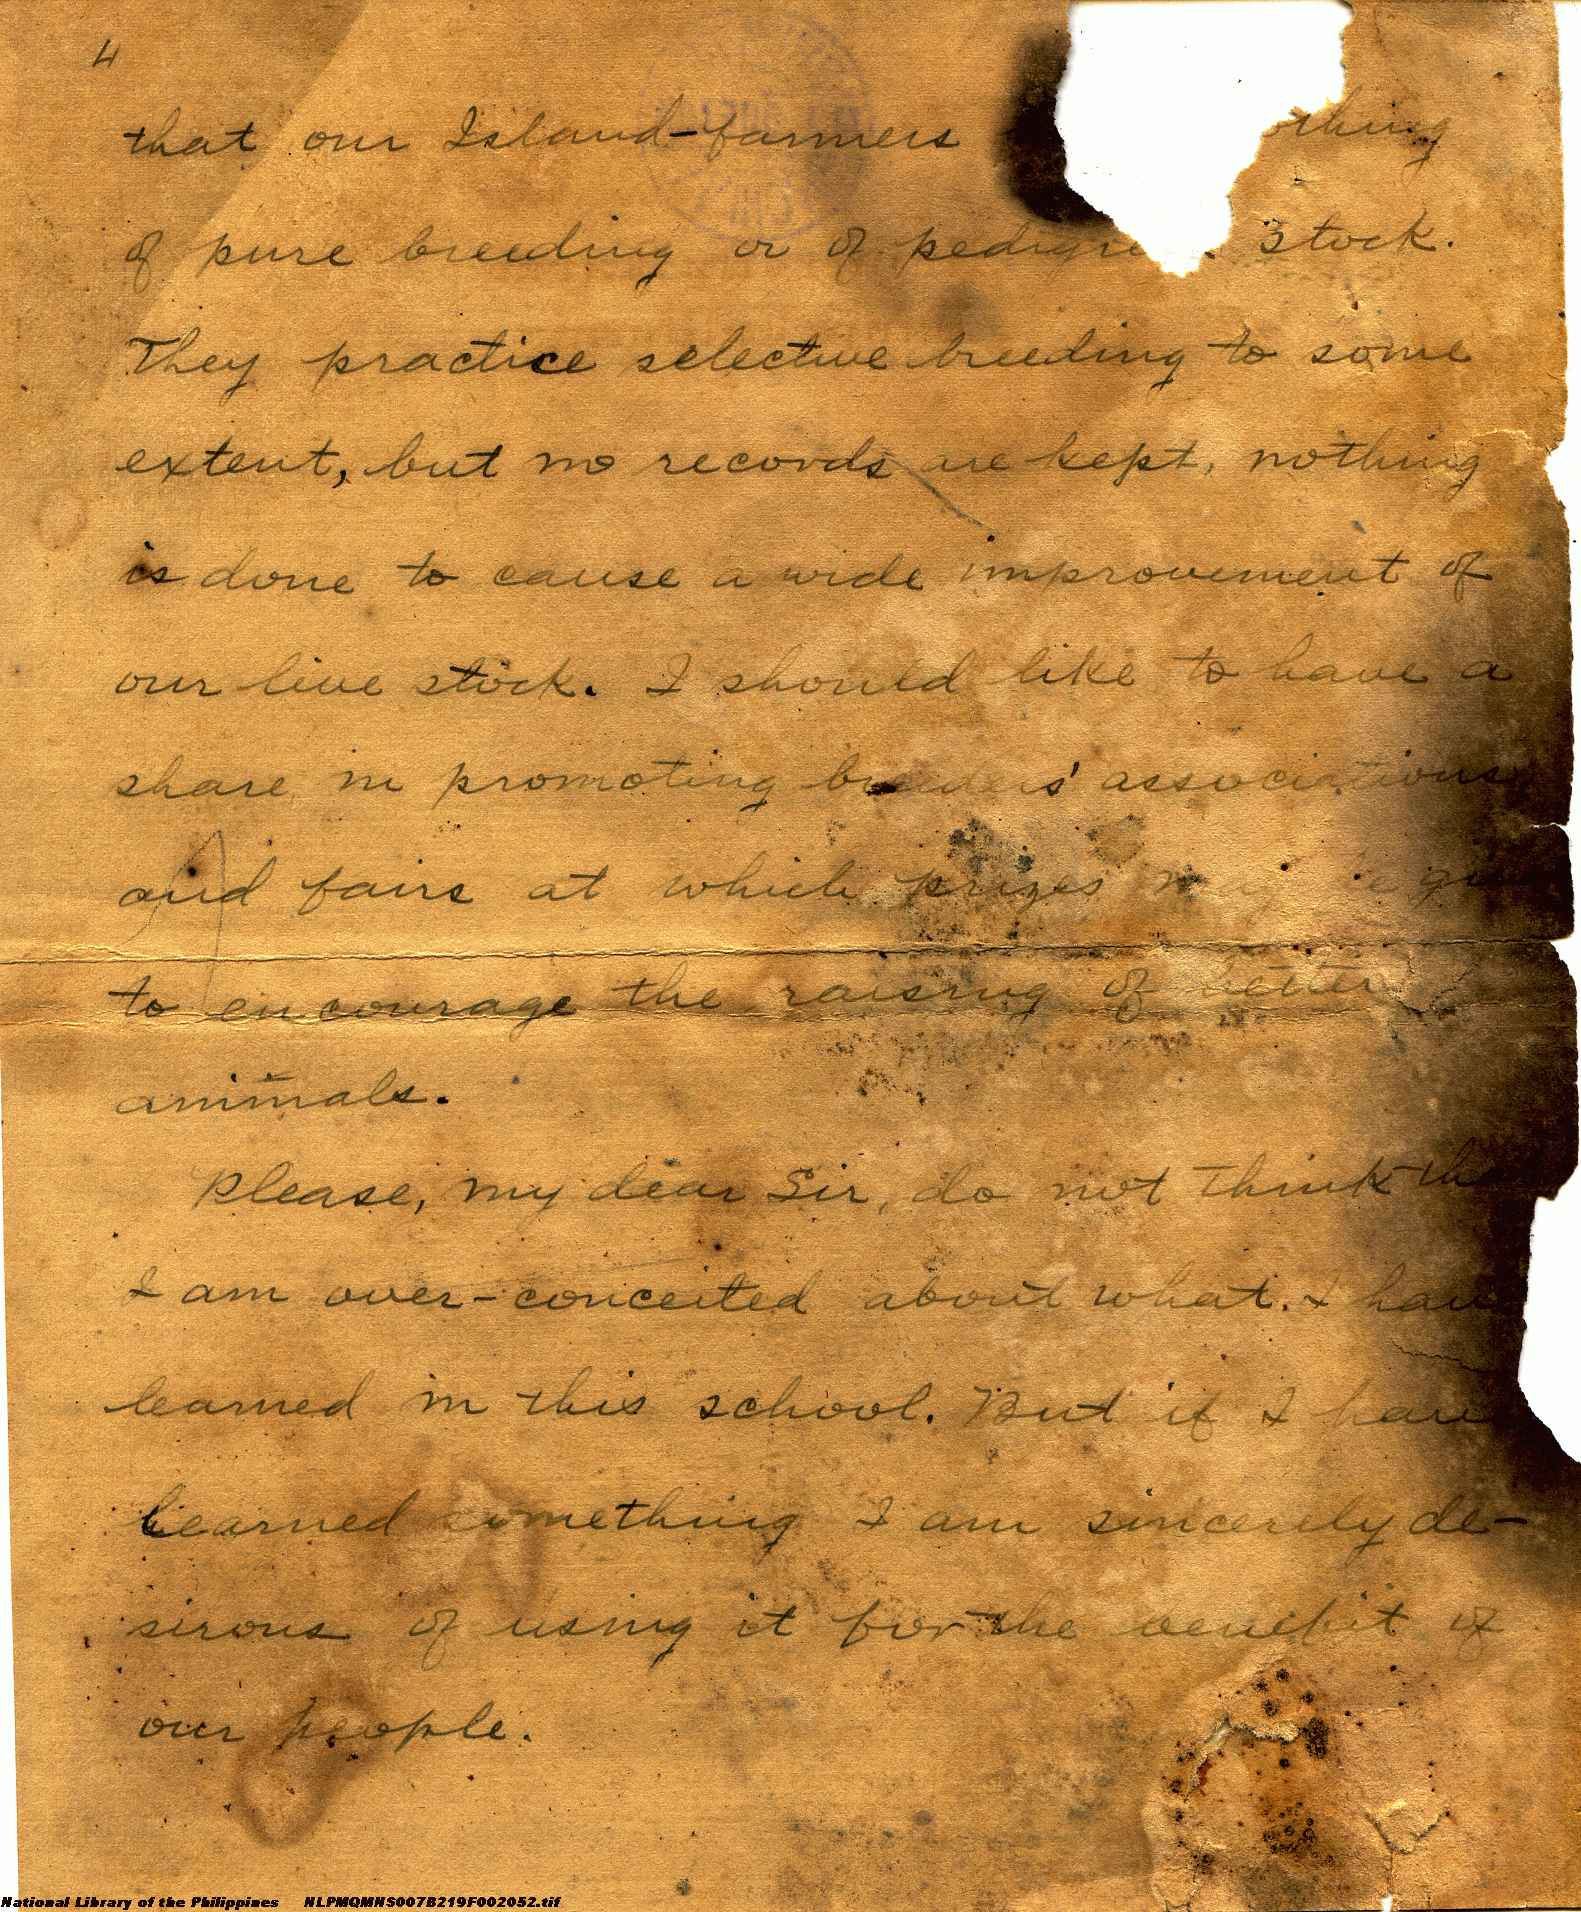 4
that our Island-farmers
of pure breeding or of stock.
They practice selective breeding to some
extent, but no records are kept, nothing
is done to cause a wide improvement of
our live stock. I should like to have a
share in promoting breeders' associations
and fairs at which prizes may be
to encourage the raising of better
animals.
Please, my dear Sir, do not think
I am over-conceited about what I have
learned in this school. But if I have
learned something I am sincerely de-
sirous of using it for the benefit of
our people.
National Library of the Philippines NLPMQMNS007B219F002052.tif